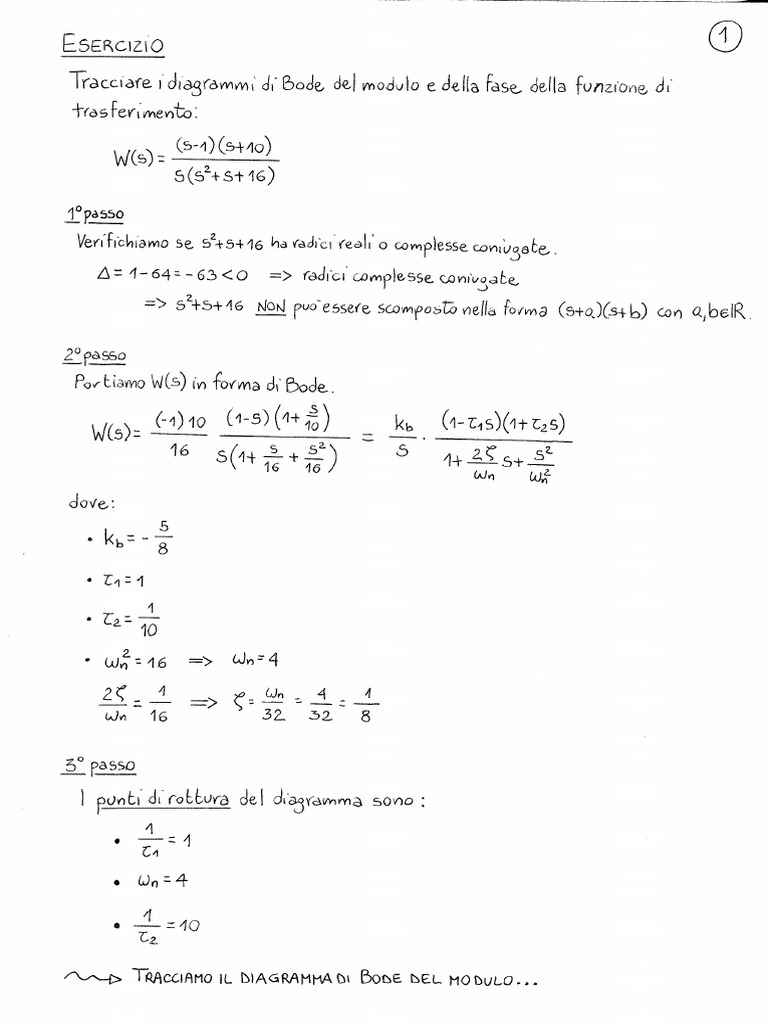 1
ESERCIZIO
Tracciare i diagrammi di Bode del modulo e della fase della funzione di
trasferimento:
W(s) = (s-1)(s+10) / s(s²+s+16)
1° passo
Verifichiamo se s²+s+16 ha radici reali o complesse coniugate.
Δ = 1-64 = -63 < 0 => radici complesse coniugate
=> s²+s+16 NON può essere scomposto nella forma (s+a)(s+b) con a,b∈ℝ.
2° passo
Portiamo W(s) in forma di Bode.
W(s) = (-1)10 / 16 (1-s)(1+s/10) / s(1+s/16+s²/16) = k_b / s · (1-τ₁s)(1+τ₂s) / 1+2ζ/ωn s+s²/ωn²
dove:
• k_b = -5/8
• τ₁ = 1
• τ₂ = 1/10
• ωn² = 16 => ωn = 4
2ζ/ωn = 1/16 => ζ = ωn/32 = 4/32 = 1/8
3° passo
I punti di rottura del diagramma sono:
• 1/τ₁ = 1
• ωn = 4
• 1/τ₂ = 10
TRACCIAMO IL DIAGRAMMA DI BODE DEL MODULO...